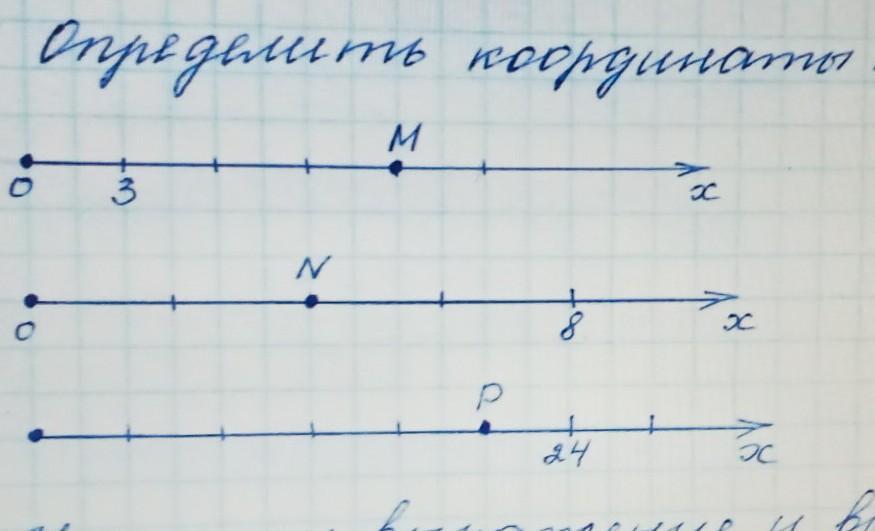 Определить координаты
M
0 3 x
N
0 8 x
P
24 x